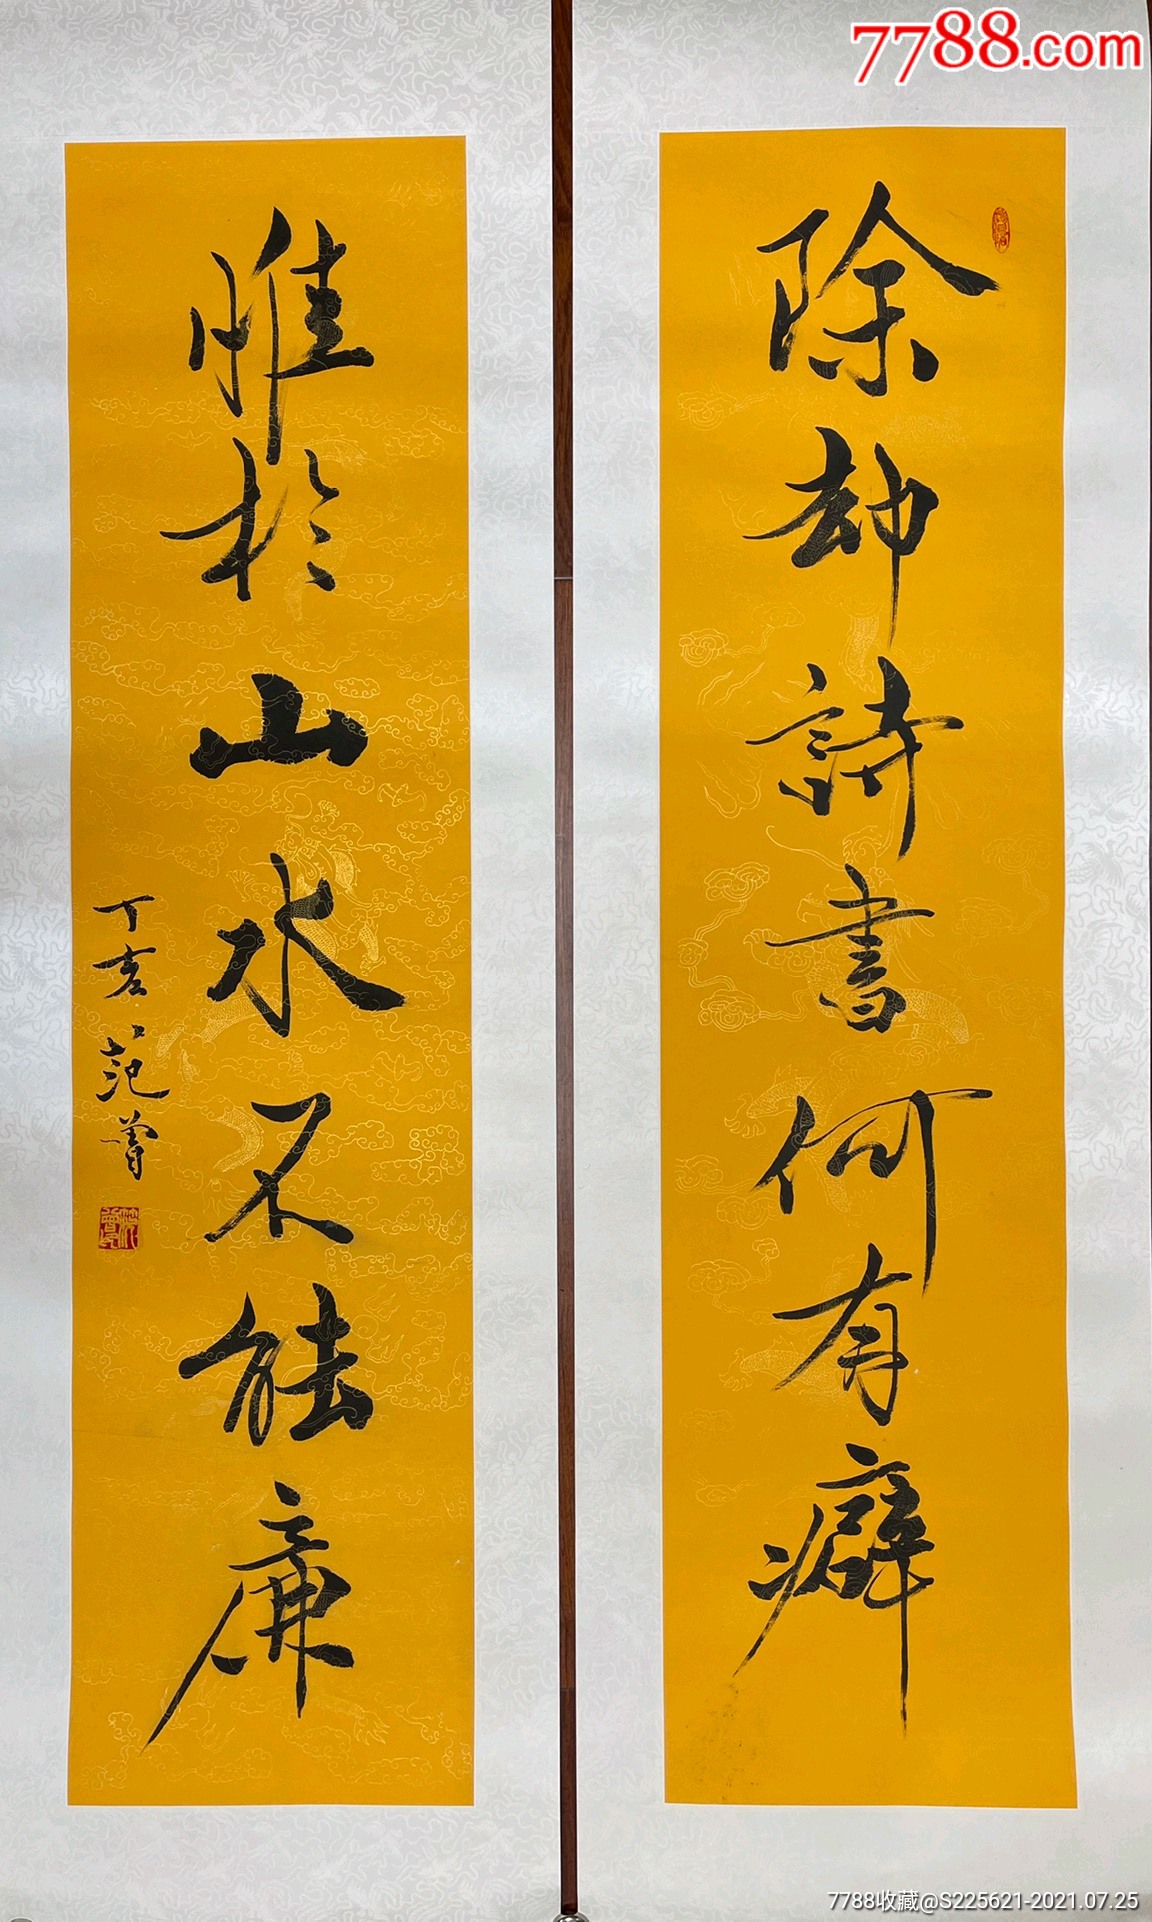 7788.com
除却詩書何有癖
惟於山水不能廉
丁亥 范曾
7788收藏@S225621-2021.07.25